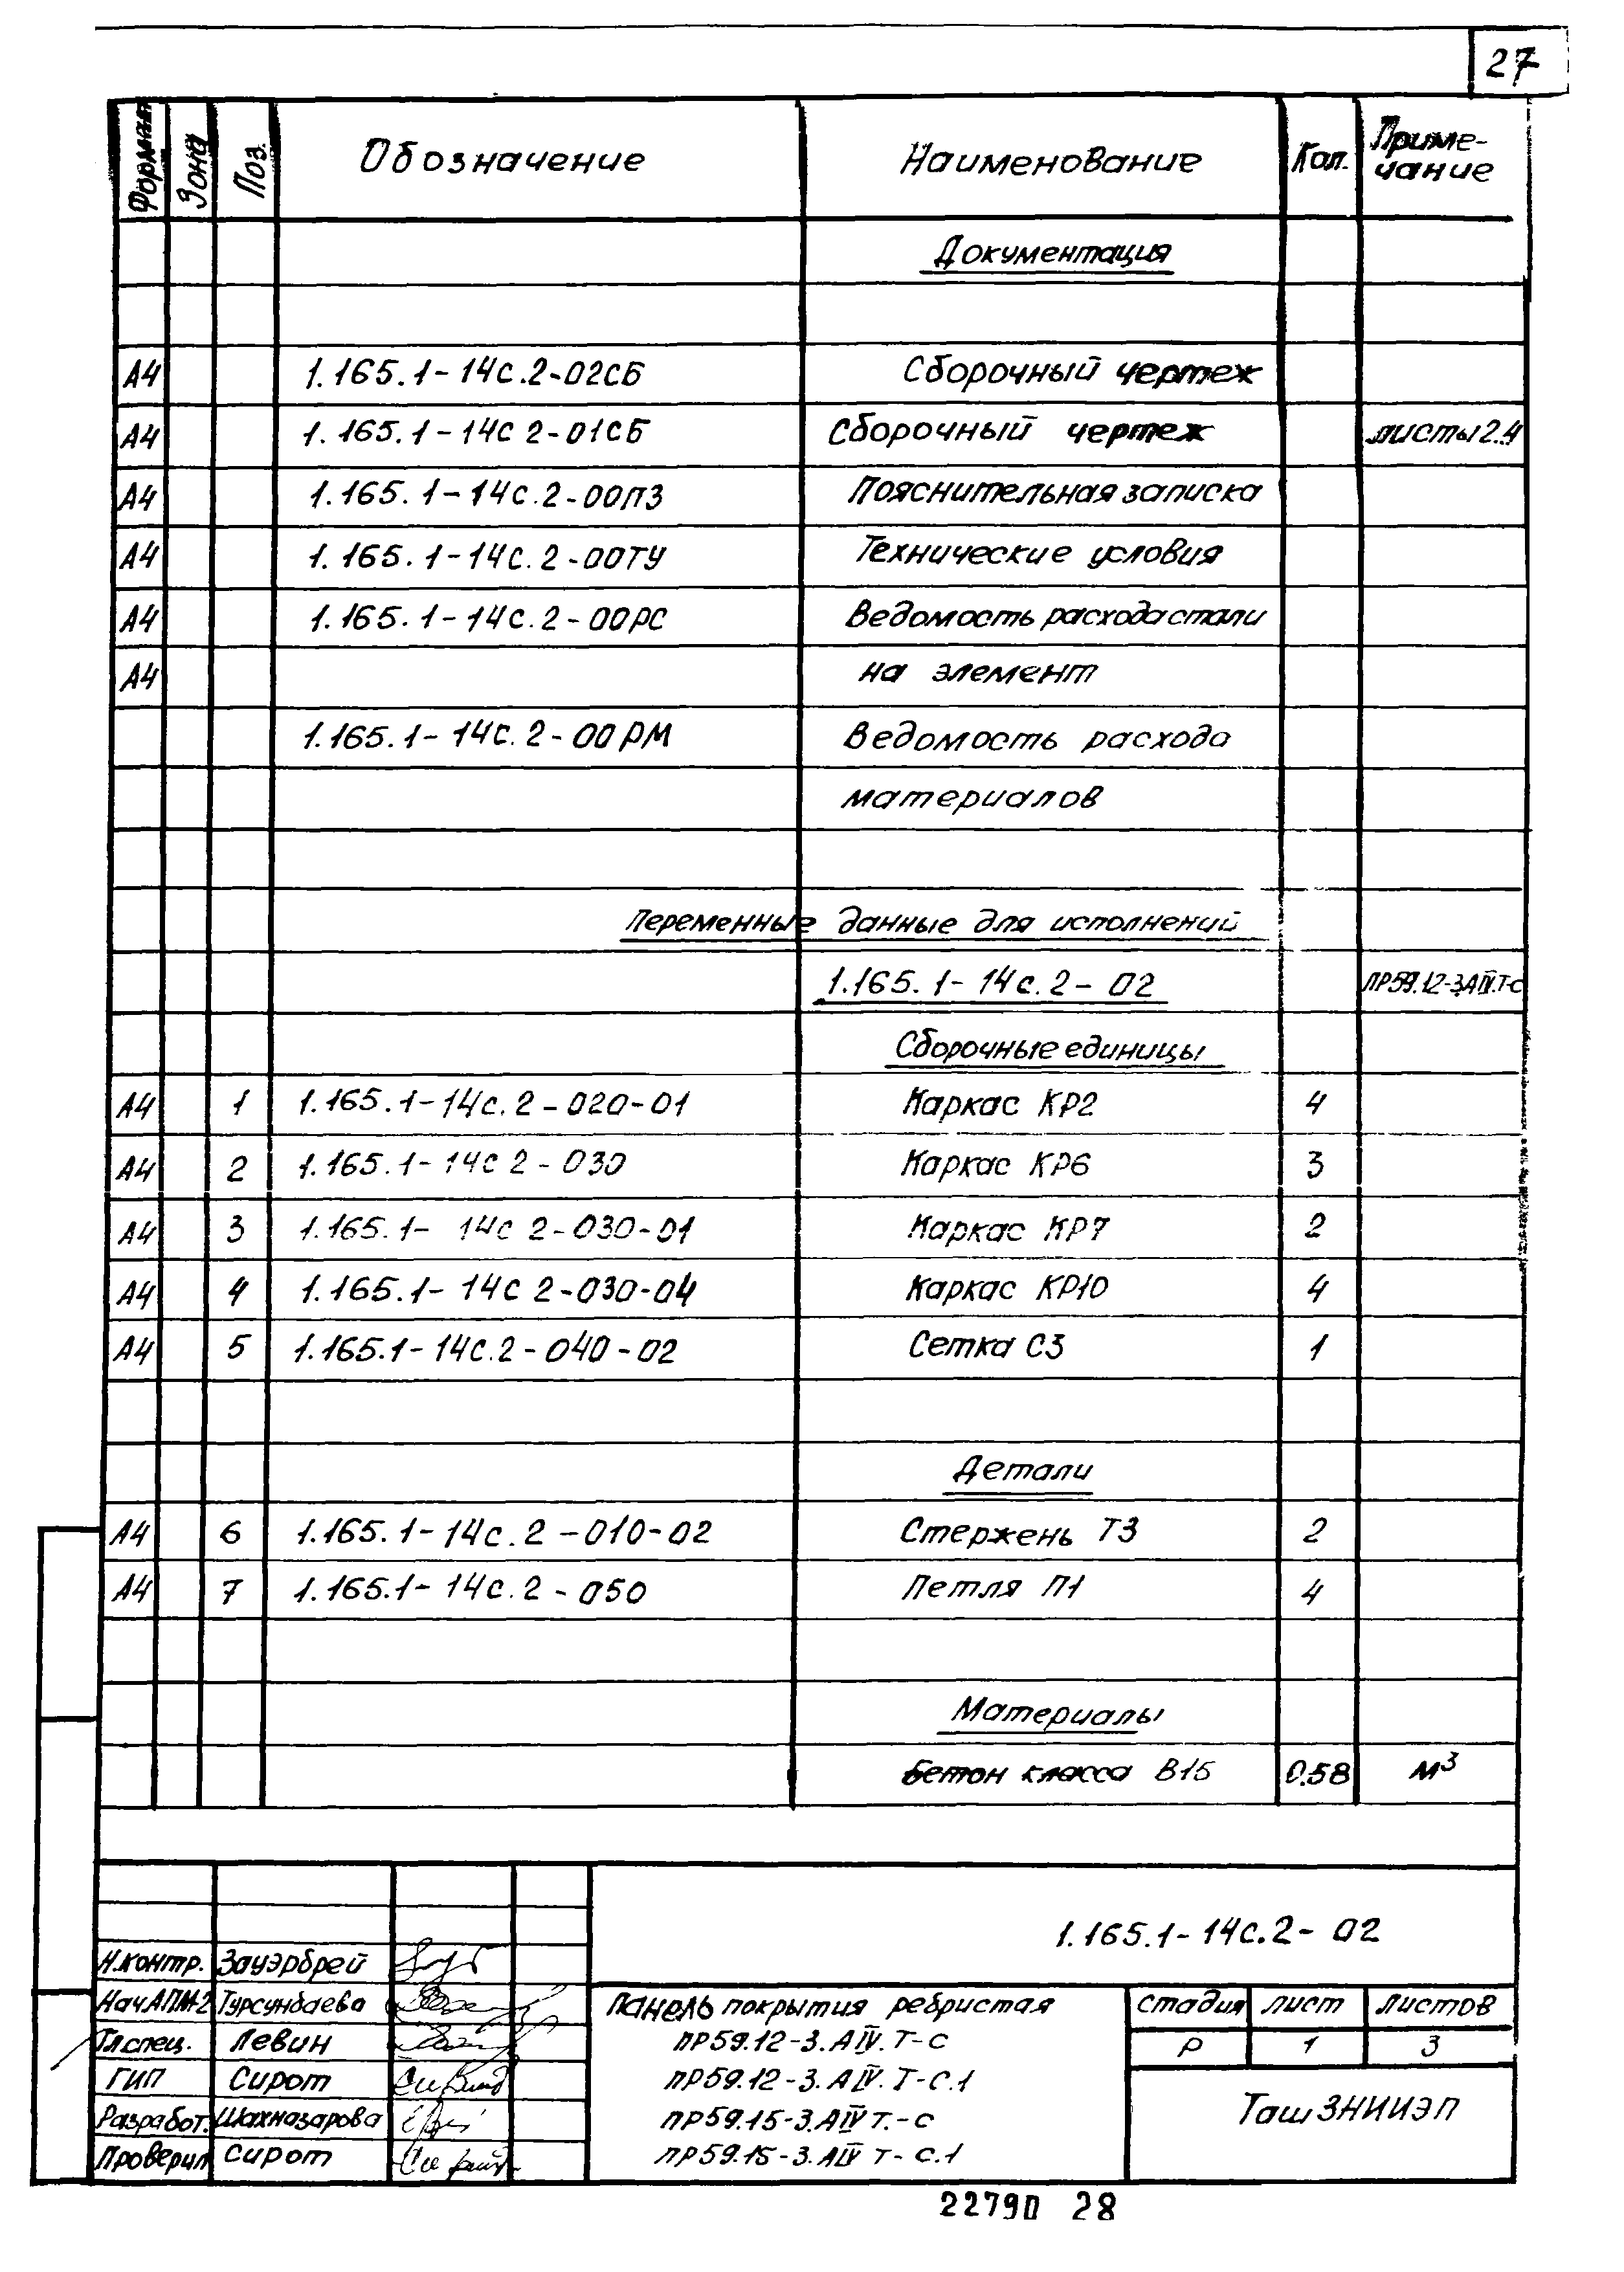 27
Формат Зона Поз. Обозначение Наименование Кол. Примечание
Документация
А4 1.165.1-14с.2-02СБ Сборочный чертеж
А4 1.165.1-14с 2-01СБ Сборочный чертеж листы 2.4
А4 1.165.1-14с.2-00ПЗ Пояснительная записка
А4 1.165.1-14с.2-00ТУ Технические условия
А4 1.165.1-14с.2-00РС Ведомость расхода стали
А4 на элемент
1.165.1-14с.2-00РМ Ведомость расхода
материалов
Переменные данные для исполнений
1.165.1-14с.2-02 ПР59.12-3.АIV.Т-с
Сборочные единицы
А4 1 1.165.1-14с.2-020-01 Каркас КР2 4
А4 2 1.165.1-14с 2-030 Каркас КР6 3
А4 3 1.165.1-14с 2-030-01 Каркас КР7 2
А4 4 1.165.1-14с 2-030-04 Каркас КР10 4
А4 5 1.165.1-14с.2-040-02 Сетка С3 1
Детали
А4 6 1.165.1-14с.2-010-02 Стержень Т3 2
А4 7 1.165.1-14с.2-050 Петля П1 4
Материалы
Бетон класса В15 0.58 м³
1.165.1-14с.2-02
Н.контр. Зауэрбрей
Нач АПМ-2 Турсунбаева
Гл.спец. Левин
ГИП Сирот
Разработ. Шахназарова
Проверил Сирот
Панель покрытия ребристая
ПР59.12-3.АIV.Т-с
ПР59.12-3.АIV.Т-с.1
ПР59.15-3.АIV т.-с
ПР59.15-3.АIV т-с.1
стадия лист листов
Р 1 3
ТашЗНИИЭП
22790 28